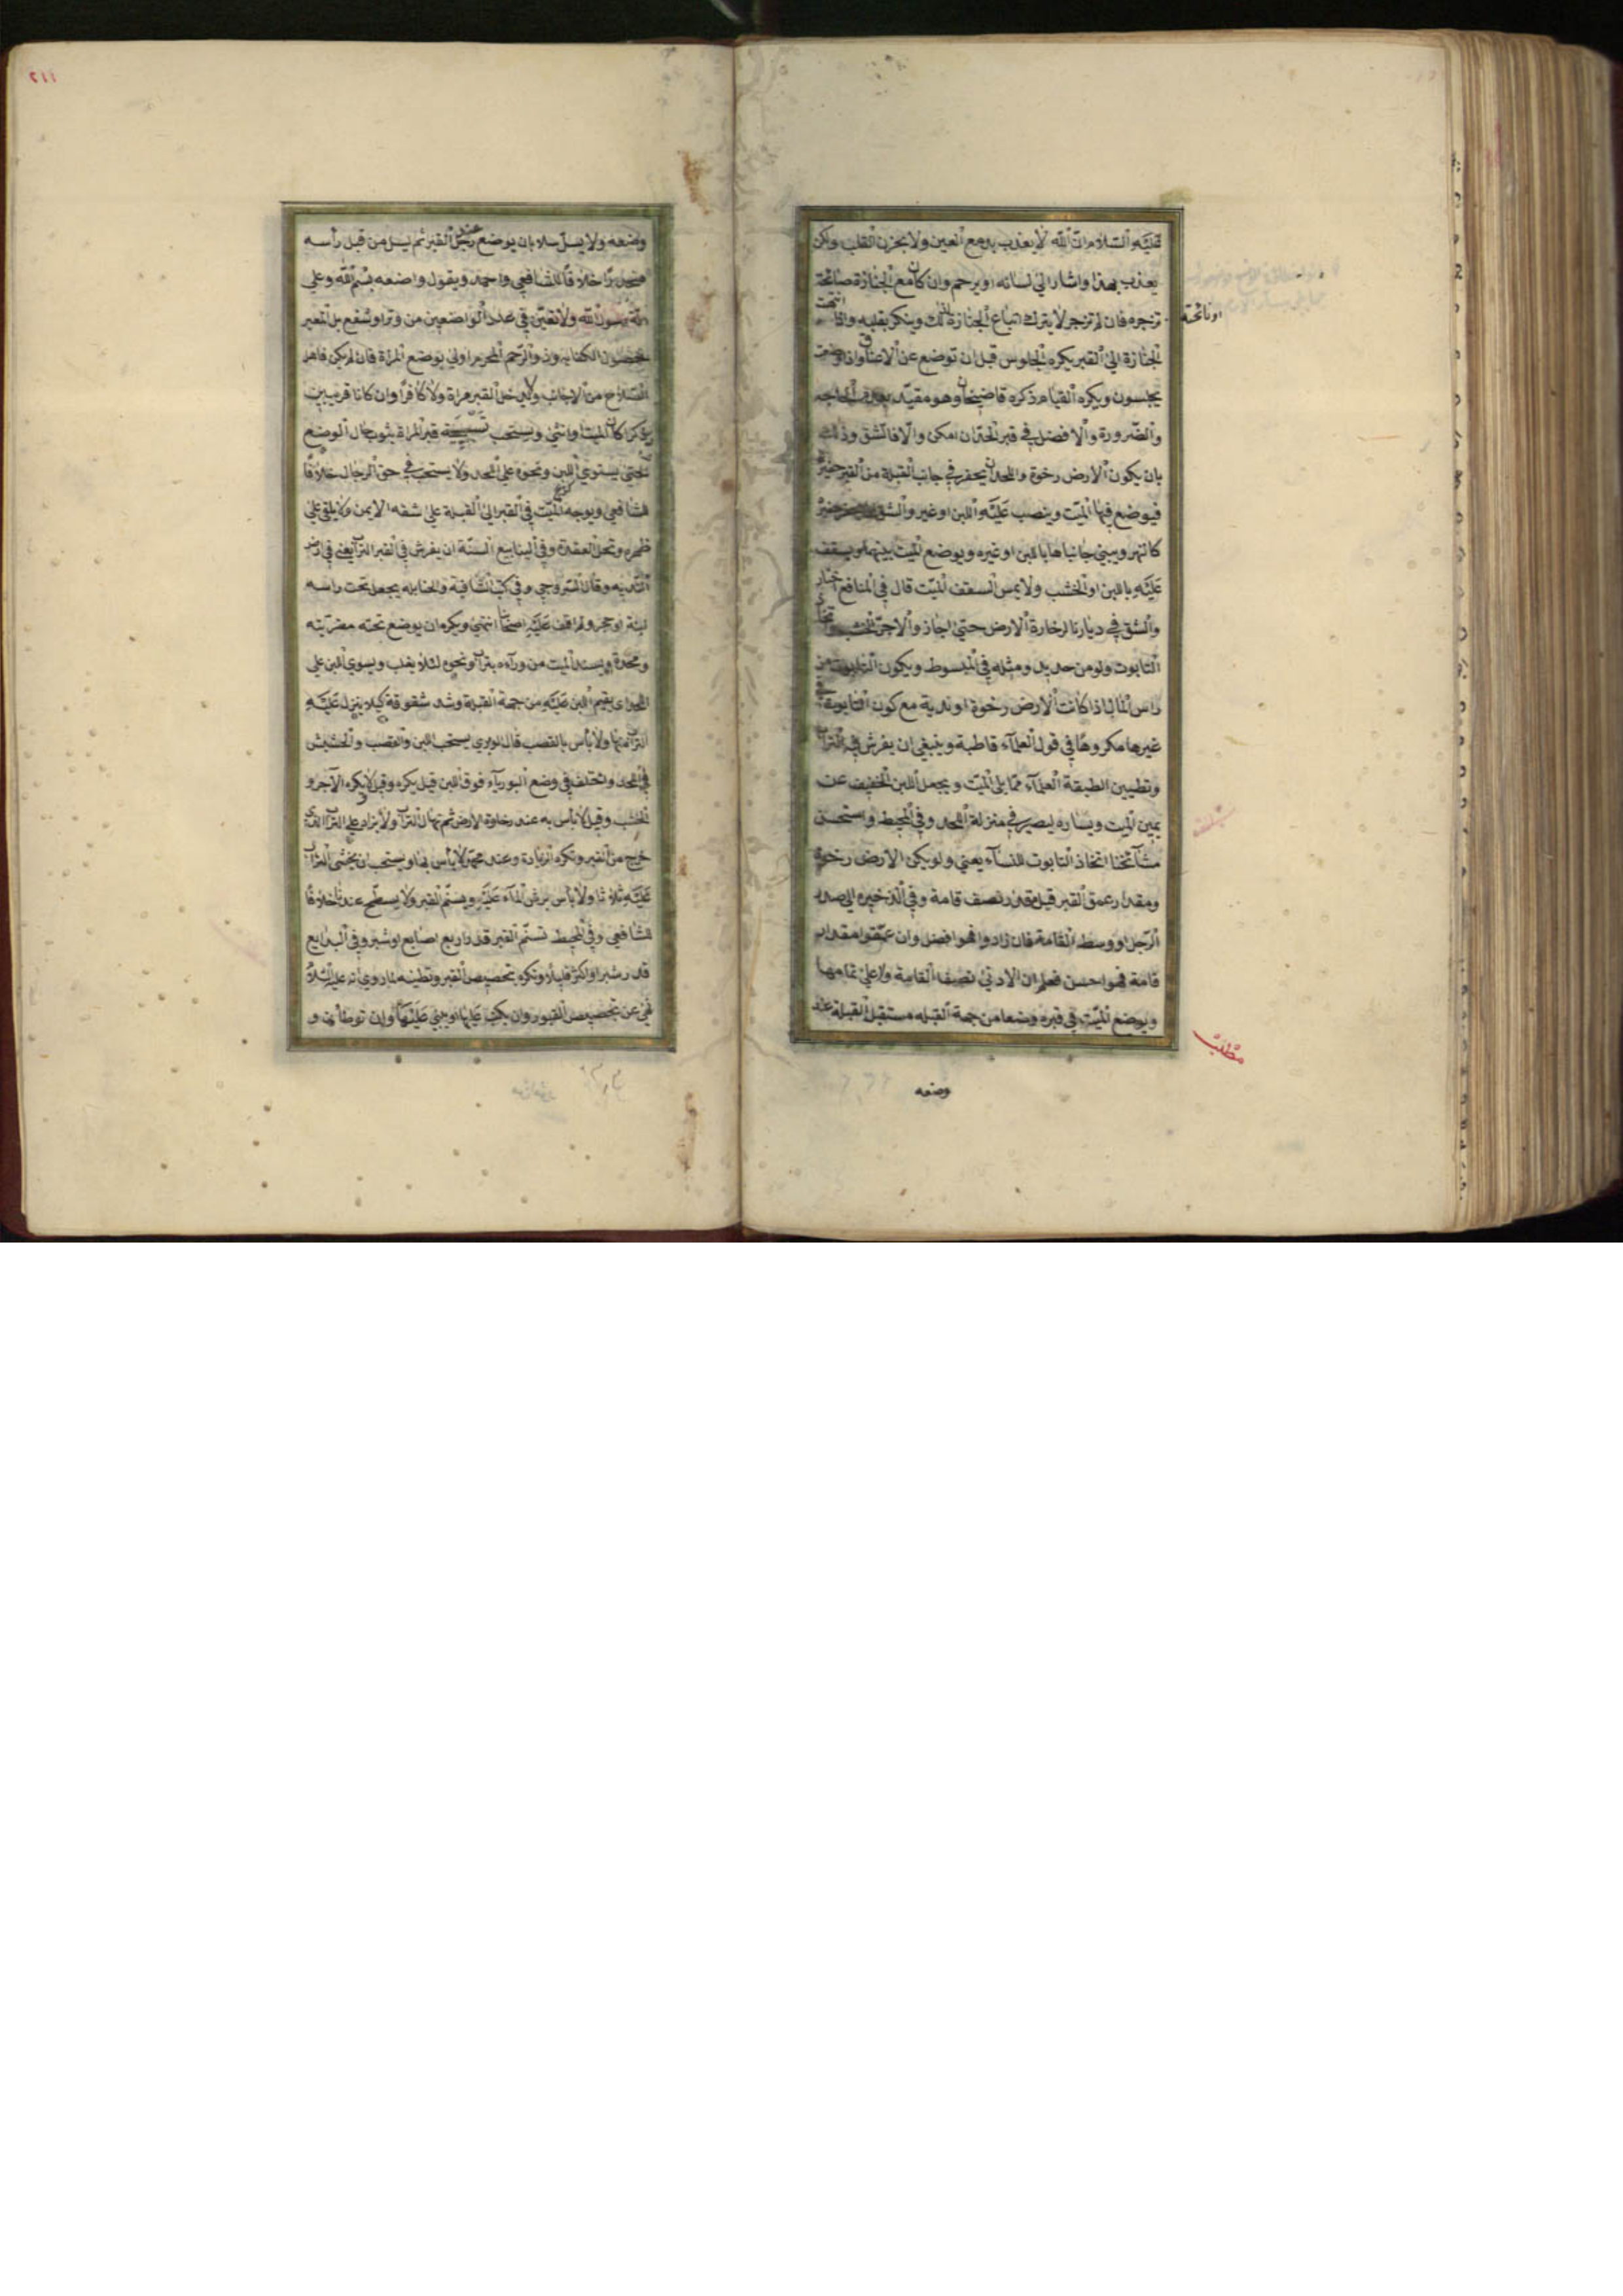 عليه السلام ان الله لا يعذب بدمع العين ولا بحزن القلب ولكن
يعذب بهذا واشار الى لسانه او يرحم وان كان مع الجنازة صائحة
او نائحة
تزجره فان لم تزجر لا يترك اتباع الجنازة لذلك وينكر بقلبه واذا انتهت
الجنازة الى القبر يكره الجلوس قبل ان توضع عن الاعناق واذا وضعت
يجلسون ويكره القيام ذكره قاضيخان وهو مقيد بعدم الحاجه
والضرورة والافضل في قبر اللحد ان امكن والا فالشق وذلك
بان يكون الارض رخوة واللحد ان يحفر في جانب القبلة من القبر حفيرة
فيوضع فيها الميت وينصب عليه اللبن او غيره والشق حفيرة
كالنهر ويبني جانباها باللبن او غيره ويوضع الميت بينهما ويسقف
عليه باللبن او الخشب ولا يمس السقف الميت قال في المنافع اختاروا
والشق في ديارنا لرخاوة الارض حتى اجازوا الاجر الخشب
التابوت ولو من حديد ومثله في المبسوط ويكون التابوت من
راس المال اذا كانت الارض رخوة او ندية مع كون التابوت في
غيرها مكروها في قول العلماء قاطبة وينبغي ان يفرش فيه التراب
وتطيين الطبقة العلياء مما يلي الميت ويجعل اللبن الخفيف عن
يمين الميت ويساره ليصير في منزلة اللحد وفي المحيط واستحسن
مشايخنا اتخاذ التابوت للنساء يعني ولو يكن الارض رخوة
ومقدار عمق القبر قيل قدر نصف قامة وفي الذخيره الى صدر
الرجل او وسط القامة فان زادوا فهو افضل وان عمقوا مقدار
قامة فهو احسن فعلم ان الادنى نصف القامة والاعلى تمامها
ويوضع الميت في قبره وضعا من جهة القبله مستقبل القبلة عند
مطلب
وضعه
١١٢
وضعه ولا يسل سلا بان يوضع عند رجل القبر ثم يسل من قبل رأسه
منحدرا خلافا للشافعي واحمد ويقول واضعه بسم الله وعلى
ملة رسول الله ولا تعين في عدد الواضعين من وتر او شفع بل المعتبر
حصول الكفاية وذو الرحم المحرم اولى بوضع المراة فان لم يكن فاهل
الصلاح من الاجانب ولا يدخل القبر مراة ولا كافر وان كانا قريبين
ذكرا كان الميت او انثى ويستحب تسجية قبر المراة بثوب حال الوضع
حتى يستوي اللبن ونحوه على اللحد ولا يستحب في حق الرجال خلافا
للشافعي ويوجه الميت في القبر الى القبلة على شقه الايمن ولا يلقى على
ظهره وتحل العقدة وفي الينابيع السنة ان يفرش في القبر التراب يعني في ارض
الندية وقال السروجي وفي كتب الشافعية والحنابله يجعل تحت راسه
لبنة او حجر ولم اقف عليه اصحابنا انتهى ويكره ان يوضع تحته مضربته
ومخدة ويسند الميت من وراءه بتراب ونحوه لئلا يقلب ويسوي اللبن على
اللحد اي يقيم اللبن عليه من جهة القبلة وشد شقوقه كيلا ينزل عليه
التراب منها ولا بأس بالقصب قال الوبري يستحب اللبن والقصب والحشيش
في اللحد واختلف في وضع البورياء فوق اللبن قيل يكره وقيل لا يكره الآجر و
الخشب وقيل لا باس به عند رخاوة الارض ثم يهال التراب ولا يزاد على التراب الذي
خرج من القبر وتكره الزيادة وعند محمد لا بأس بها ويستحب ان يحثى التراب
عليه ثلاثا ولا باس برش الماء عليه ويسنم القبر ولا يسطح عندنا خلافا
للشافعي وفي المحيط تسنم القبر قدر اربع اصابع او شبر وفي البدايع
قدر شبر او اكثر قليلا وتكره تجصيص القبر وتطينه لما روي انه عليه السلام
نهى عن تجصيص القبور وان يكتب عليها او يبنى عليها وان توطأ و